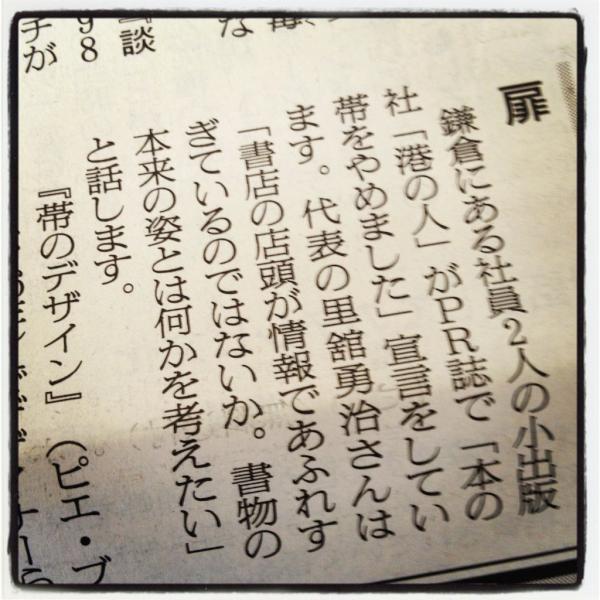 扉
鎌倉にある社員2人の小出版
社「港の人」がPR誌で「本の
帯をやめました」宣言をしてい
ます。代表の里舘勇治さんは
「書店の店頭が情報であふれす
ぎているのではないか。書物の
本来の姿とは何かを考えたい」
と話します。
『帯のデザイン』(ピエ・ブ
な
『談
98
チが